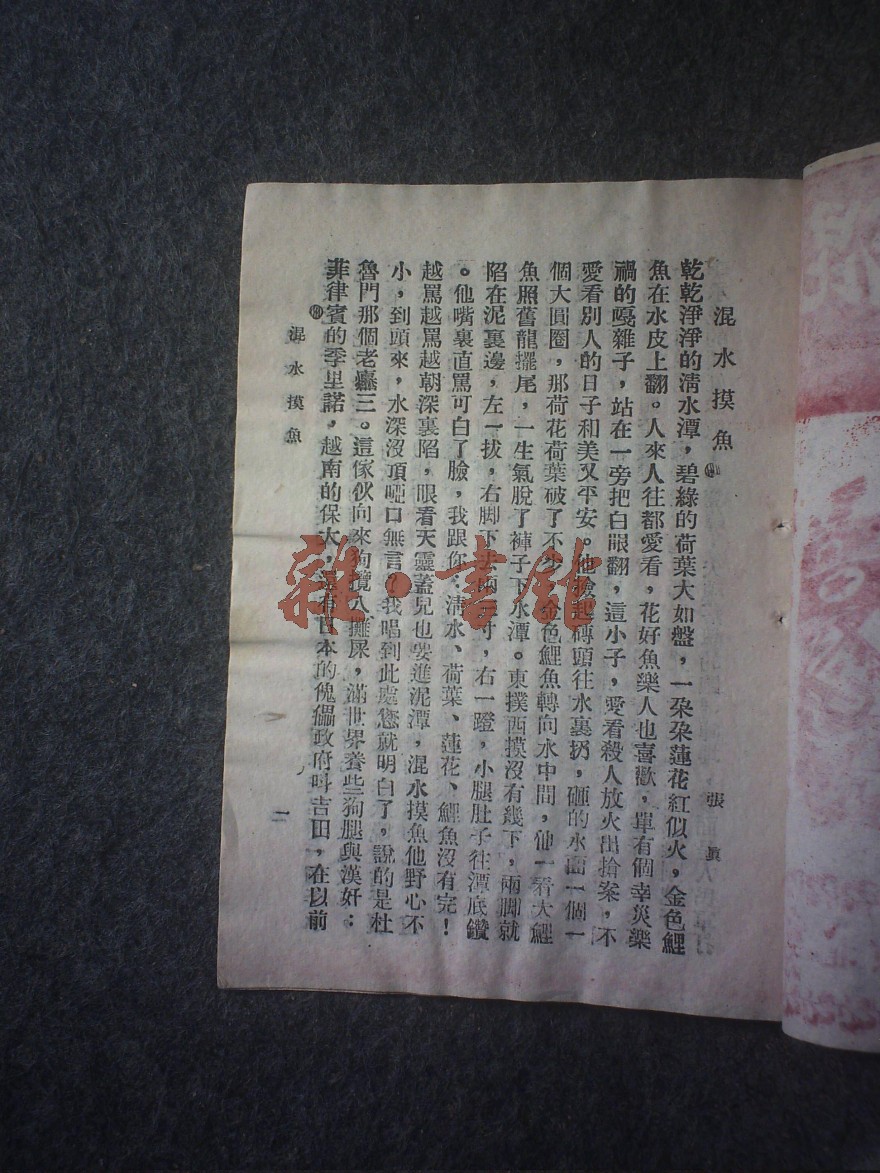 混水摸魚
張眞
乾乾淨淨的淸水潭，碧綠的荷葉大如盤，一朶朶蓮花紅似火，金色鯉
魚在水皮上翻。人來人往都愛看，花好魚樂人也喜歡，單有個幸災樂
禍的戞雜子，站在一旁把白眼翻，這小子，愛看殺人放火出搶案，不
愛看別人的日子和美又平安。他撿起磚頭往水裏扔，砸的水面一個一
個大圓圈，那荷花荷葉破了不少，金色鯉魚轉向水中間，他一看大鯉
魚照舊龍擺尾，一生氣脫了褲子下水潭。東撲西摸沒有幾下，兩脚就
陷在泥裏邊，左一拔，右脚下去兩寸，右一蹬，小腿肚子往潭底鑽
。他嘴裏直駡可白了臉，我跟你：淸水、荷葉、蓮花、鯉魚沒有完！
越駡越駡越朝深裏陷，眼看天靈蓋兒也要進泥潭，混水摸魚他野心不
小，到頭來，水深沒頂啞口無言？我唱到此處您就明白了，說的是杜
魯門那個老癟三。這傢伙向來狗攬八攤屎，滿世界養些狗腿與漢奸：
菲律賓的季里諾，越南的保大，還有日本的傀儡政府叫吉田，在以前
混水摸魚
一
雜·書館